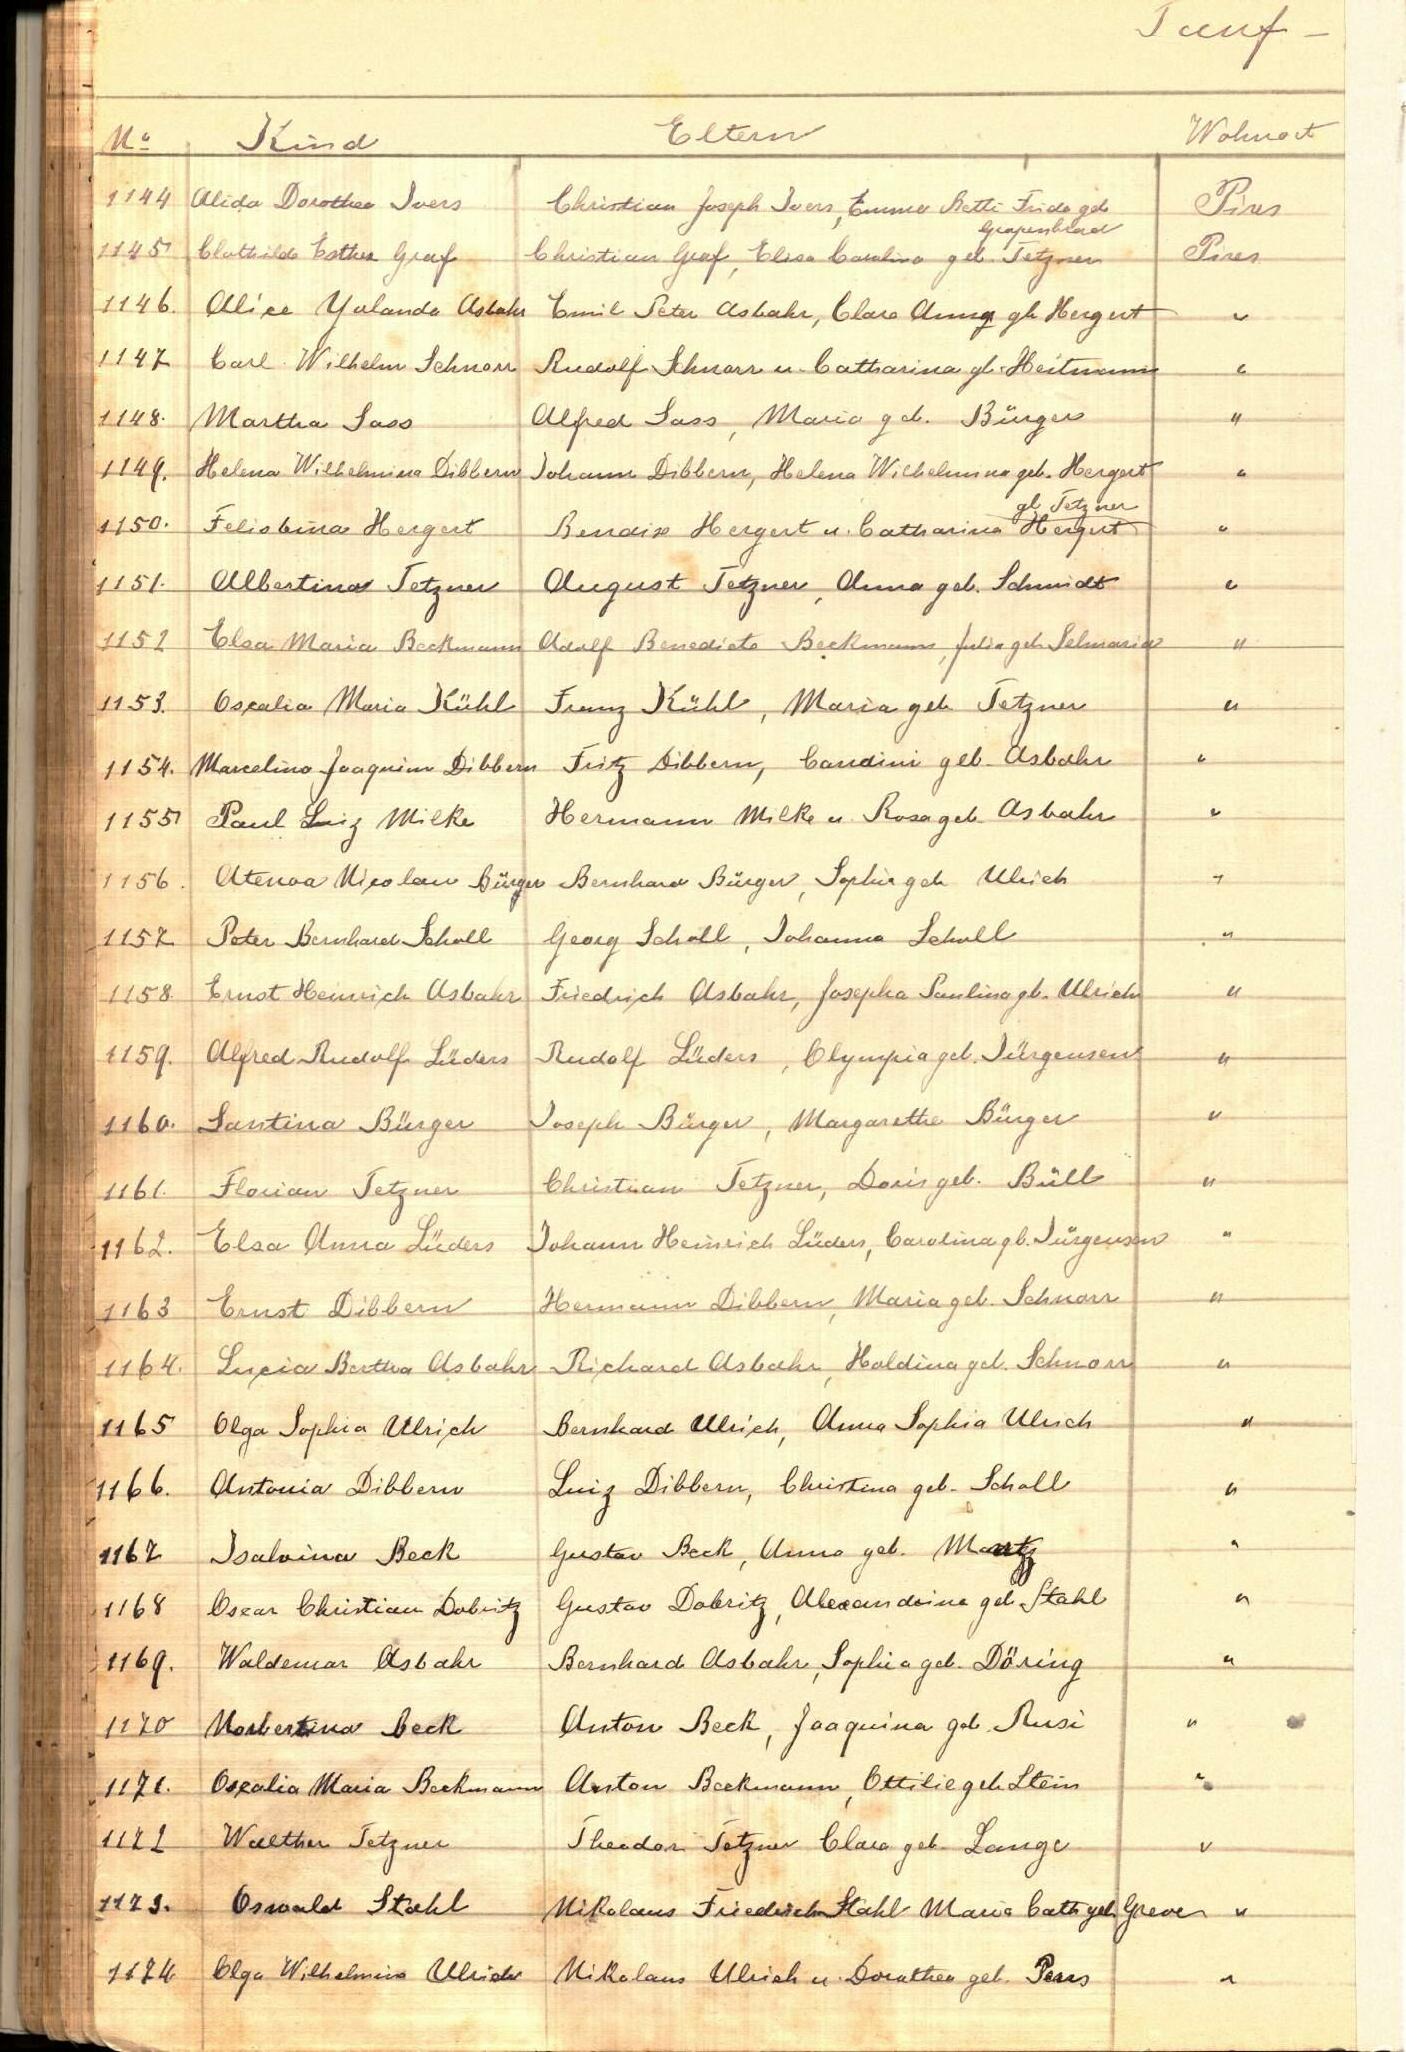 Tauf -
No Kind Eltern Wohnort
1144 Alida Dorothea Ivers Christian Joseph Ivers, Emma Betti Frida geb Grapenbrad Pires
1145 Clothilde Esther Graf Christian Graf, Elisa Carolina geb. Tetzner Pires
1146. Alice Yolanda Asbahr Emil Peter Asbahr, Clara Anna gb Hergert "
1147 Carl Wilhelm Schnorr Rudolf Schnorr u. Catharina gb. Heitmann "
1148. Martha Sass Alfred Sass, Maria geb. Bürger "
1149. Helena Wilhelmina Dibbern Johann Dibbern, Helena Wilhelmina geb. Hergert "
1150. Felisbina Hergert Bendix Hergert u. Catharina Hergert gb Tetzner "
1151. Albertina Tetzner August Tetzner, Anna geb. Schmidt "
1152 Elsa Maria Beckmann Adolf Benedicto Beckmann, Julia geb Selmaria "
1153. Oscalia Maria Kühl Franz Kühl, Maria geb Tetzner "
1154. Marcelino Joaquim Dibbern Fritz Dibbern, Candini geb. Asbahr "
1155 Paul Luiz Milke Hermann Milke u. Rosa geb. Asbahr "
1156. Atenoa Nicolau Bürger Bernhard Bürger, Sophia geb Ulrich "
1157 Peter Bernhard Scholl Georg Scholl, Johanna Scholl "
1158. Ernst Heinrich Asbahr Friedrich Asbahr, Josepha Paulina gb. Ulrich "
1159. Alfred Rudolf Lüders Rudolf Lüders, Olympia geb. Jürgensen "
1160. Santina Bürger Joseph Bürger, Margarethe Bürger "
1161. Florian Tetzner Christian Tetzner, Doris geb. Büll "
1162. Elsa Anna Lüders Johann Heinrich Lüders, Carolina gb. Jürgensen "
1163 Ernst Dibbern Hermann Dibbern, Maria geb. Schnorr "
1164. Lucia Bertha Asbahr Richard Asbahr, Holdina geb. Schnorr "
1165 Olga Sophia Ulrich Bernhard Ulrich, Anna Sophia Ulrich "
1166. Antonia Dibbern Luiz Dibbern, Christina geb. Scholl "
1167 Isalvina Beck Gustav Beck, Anna geb. "
1168 Oscar Christian Dobritz Gustav Dobritz, Alexandrina geb. Stahl "
1169. Waldemar Asbahr Bernhard Asbahr, Sophia geb. Döring "
1170 Norbertina Beck Anton Beck, Joaquina geb. Rusi "
1171. Oscalia Maria Beckmann Anton Beckmann, Ottilie geb Stein "
1172 Walther Tetzner Theodor Tetzner Clara geb. Lange "
1173. Oswald Stahl Nikolaus Friedrich Stahl Maria Cath geb Greve "
1174 Olga Wilhelmina Ulrich Nikolaus Ulrich u. Dorothea geb. "